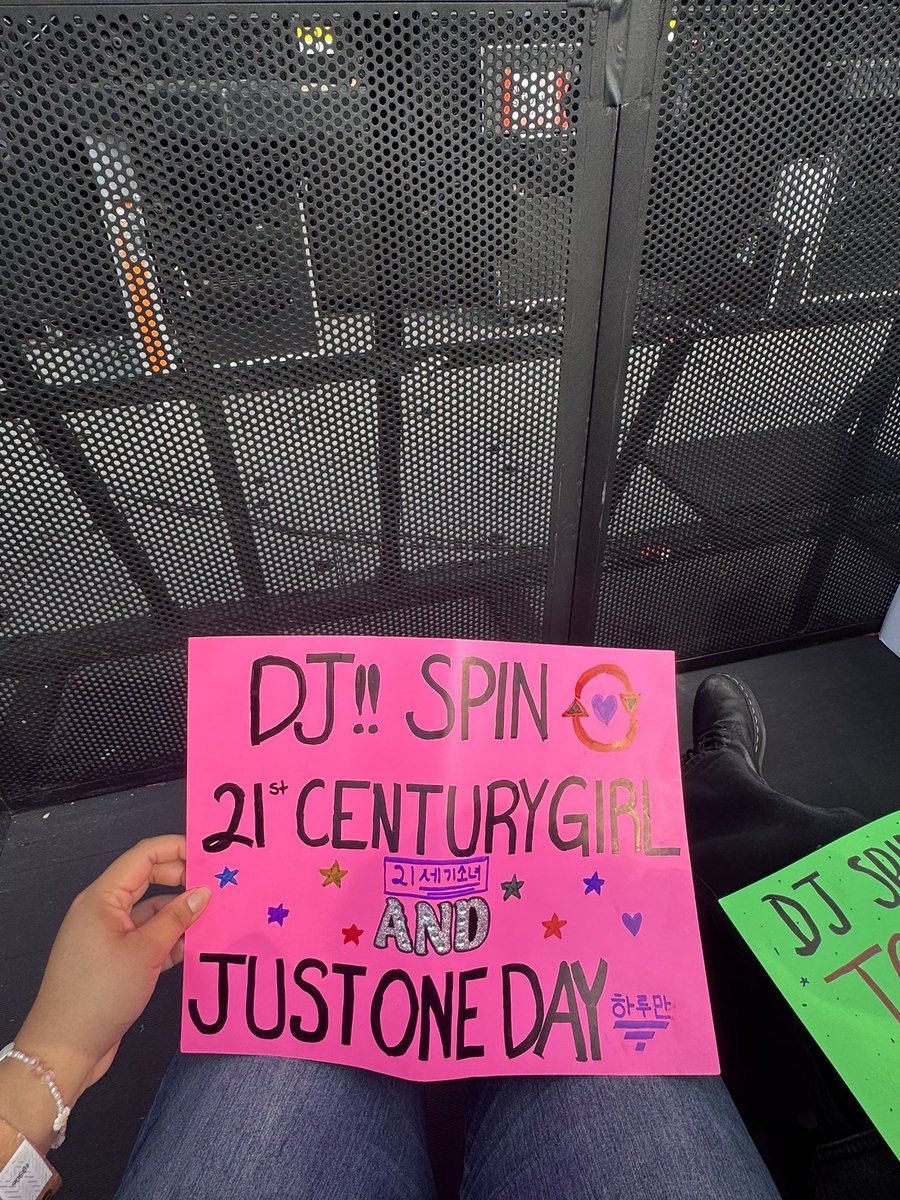 DJ!! SPIN
21st CENTURY GIRL
21세기소녀
AND
JUST ONE DAY 하루만
DJ SPIN